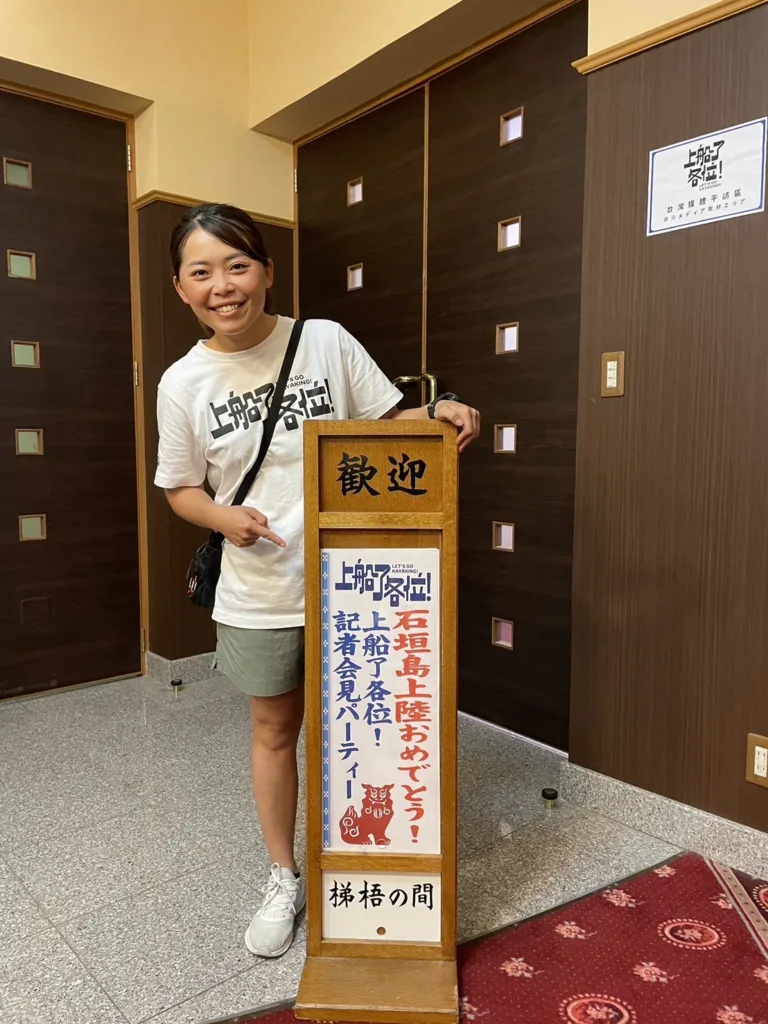 上船了
各位!
LET'S GO
KAYAKING!
台灣媒體手訪區
台湾メディア取材エリア
LET'S GO
KAYAKING!
上船了各位!
歓迎
上船了各位!
LET'S GO
KAYAKING!
石垣島上陸おめでとう!
上船了各位!
記者会見パーティー
梯梧の間